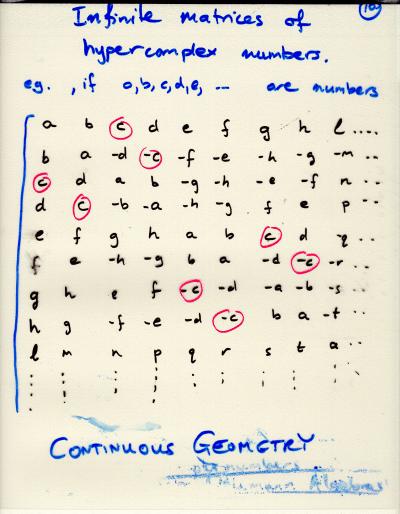 Infinite matrices of
hypercomplex numbers.
eg. , if a, b, c, d, e, ... are numbers
a b c d e f g h l .....
b a -d -c -f -e -h -g -m ...
c d a b -g -h -e -f n ...
d c -b -a -h -g f e p ..
e f g h a b c d q ...
f e -h -g b a -d -c -r ...
g h e f -c -d -a -b -s ...
h g -f -e -d -c b a -t ...
l m n p q r s t a ...
CONTINUOUS GEOMETRY
numbers.
Algebras